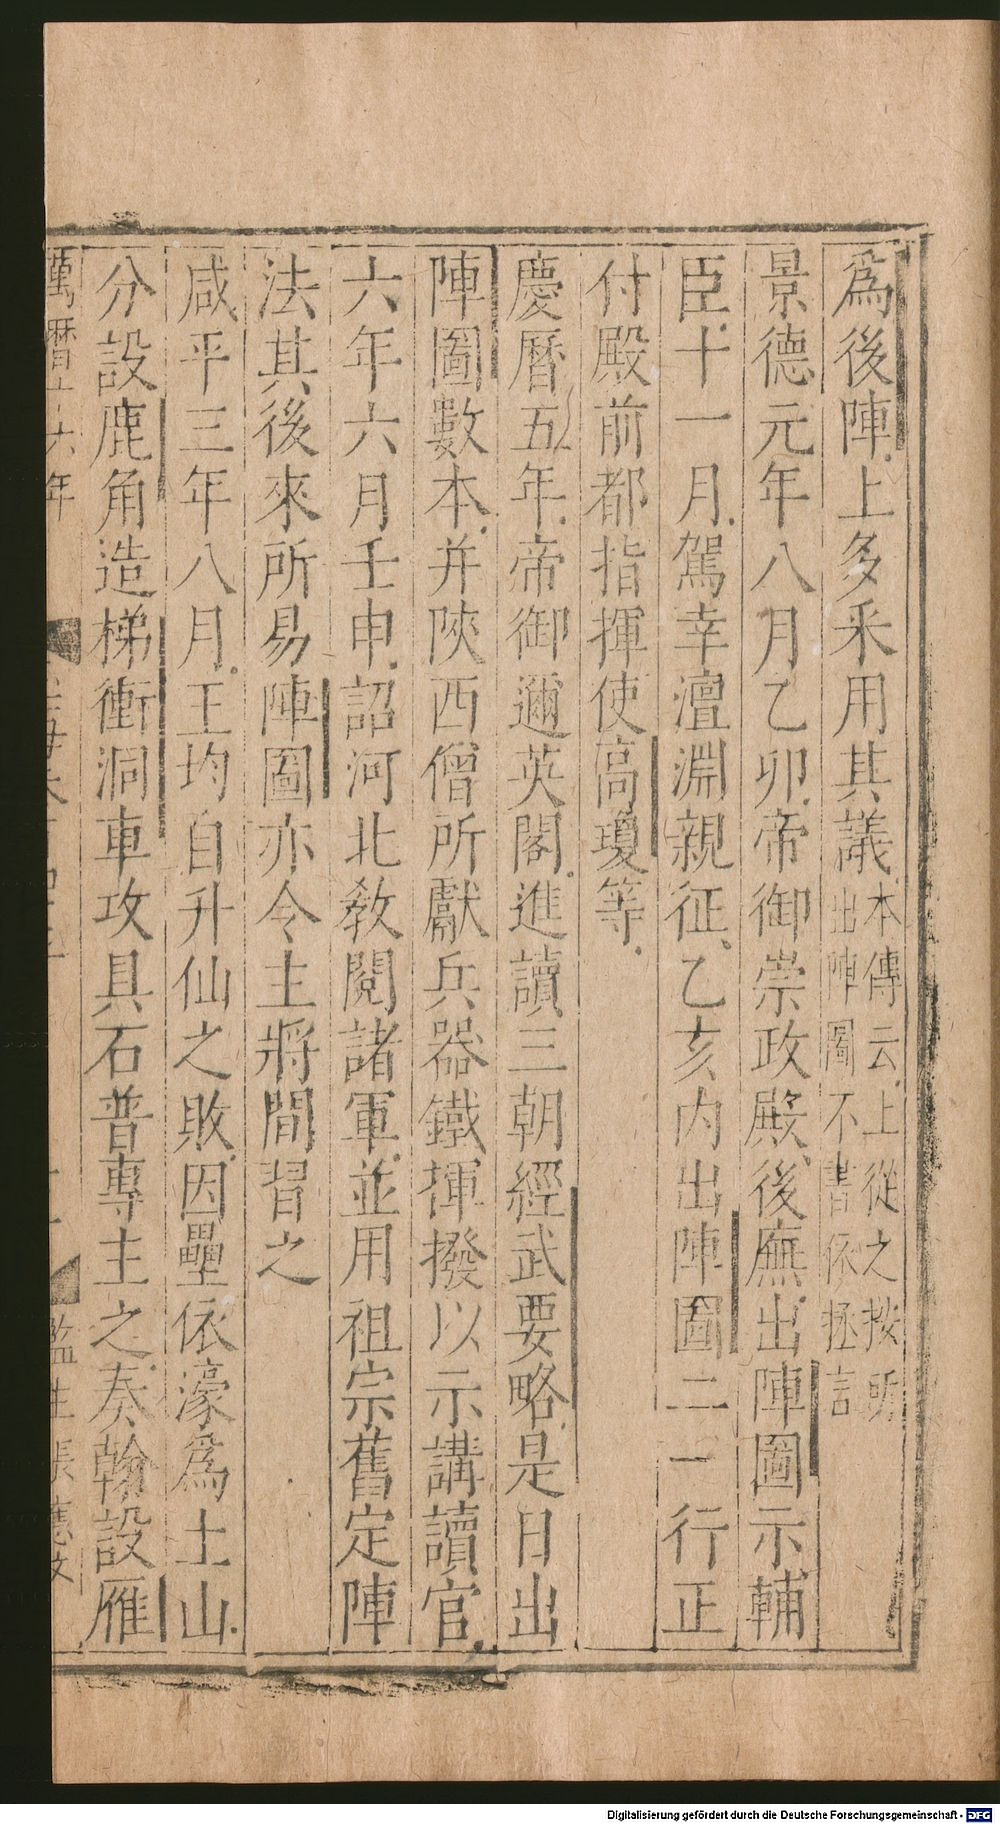 爲後陣上多釆用其議本傳云上從之按所
出陣圖不書依拯言
景德元年八月乙卯帝御崇政殿後廡出陣圖示輔
臣十一月駕幸澶淵親征乙亥内出陣圖二一行正
付殿前都指揮使高瓊等
慶曆五年帝御邇英閣進讀三朝經武要略是日出
陣圖數本并陝西僧所獻兵器鐵撢撥以示講讀官
六年六月壬申詔河北教閱諸軍並用祖宗舊定陣
法其後來所易陣圖亦令主將間習之
咸平三年八月王均自升仙之敗因壘依濠爲土山
分設鹿角造梯衝洞車攻具石普專主之奏翰設雁
萬曆十六年
監生張應文
Digitalisierung gefördert durch die Deutsche Forschungsgemeinschaft - DFG